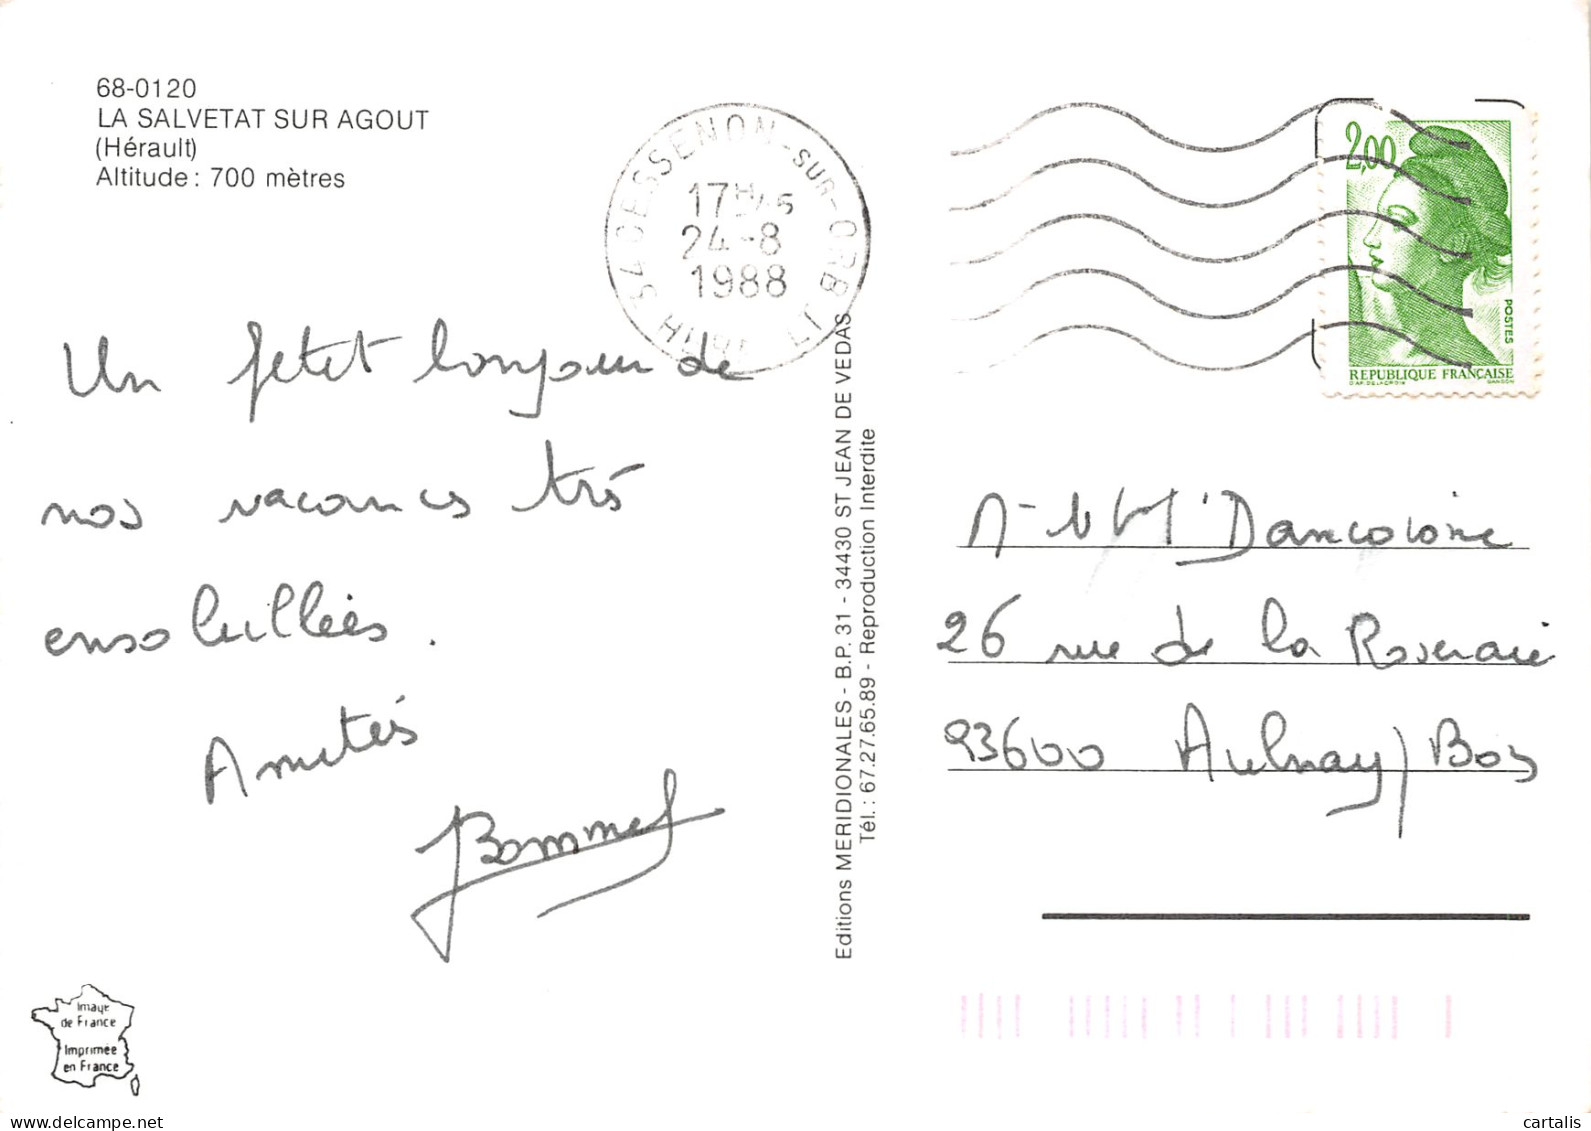 68-0120
LA SALVETAT SUR AGOUT
(Hérault)
Altitude : 700 mètres
34 CESSENON-SUR-ORB
17H45
24-8
1988
HERAULT
2,00
POSTES
REPUBLIQUE FRANÇAISE
D'AP. DELACROIX GANDON
Un petit bonjour de
nos vacances très
ensoleillées.
Amitiés
Editions MERIDIONALES - B.P. 31 - 34430 ST JEAN DE VEDAS
Tél. : 67.27.65.89 - Reproduction Interdite
26 rue de la Roseraie
93600 Aulnay/Bois
Image
de France
Imprimée
en France
cartalis